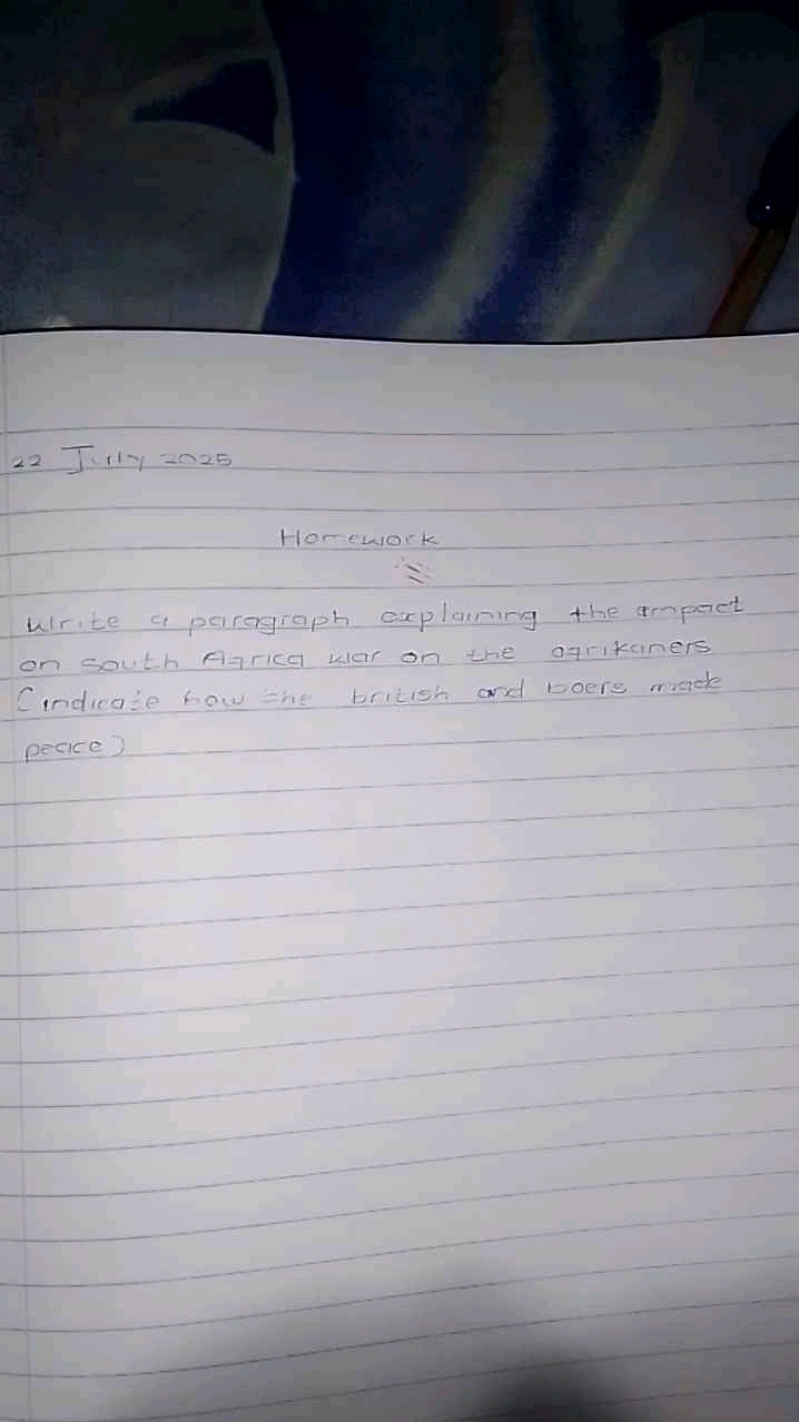 22 Jully 2025
Homework
Write a paragraph explaining the ampact
on south Agrica war on the agrikaners
(indicate how the british and boers made
peace)